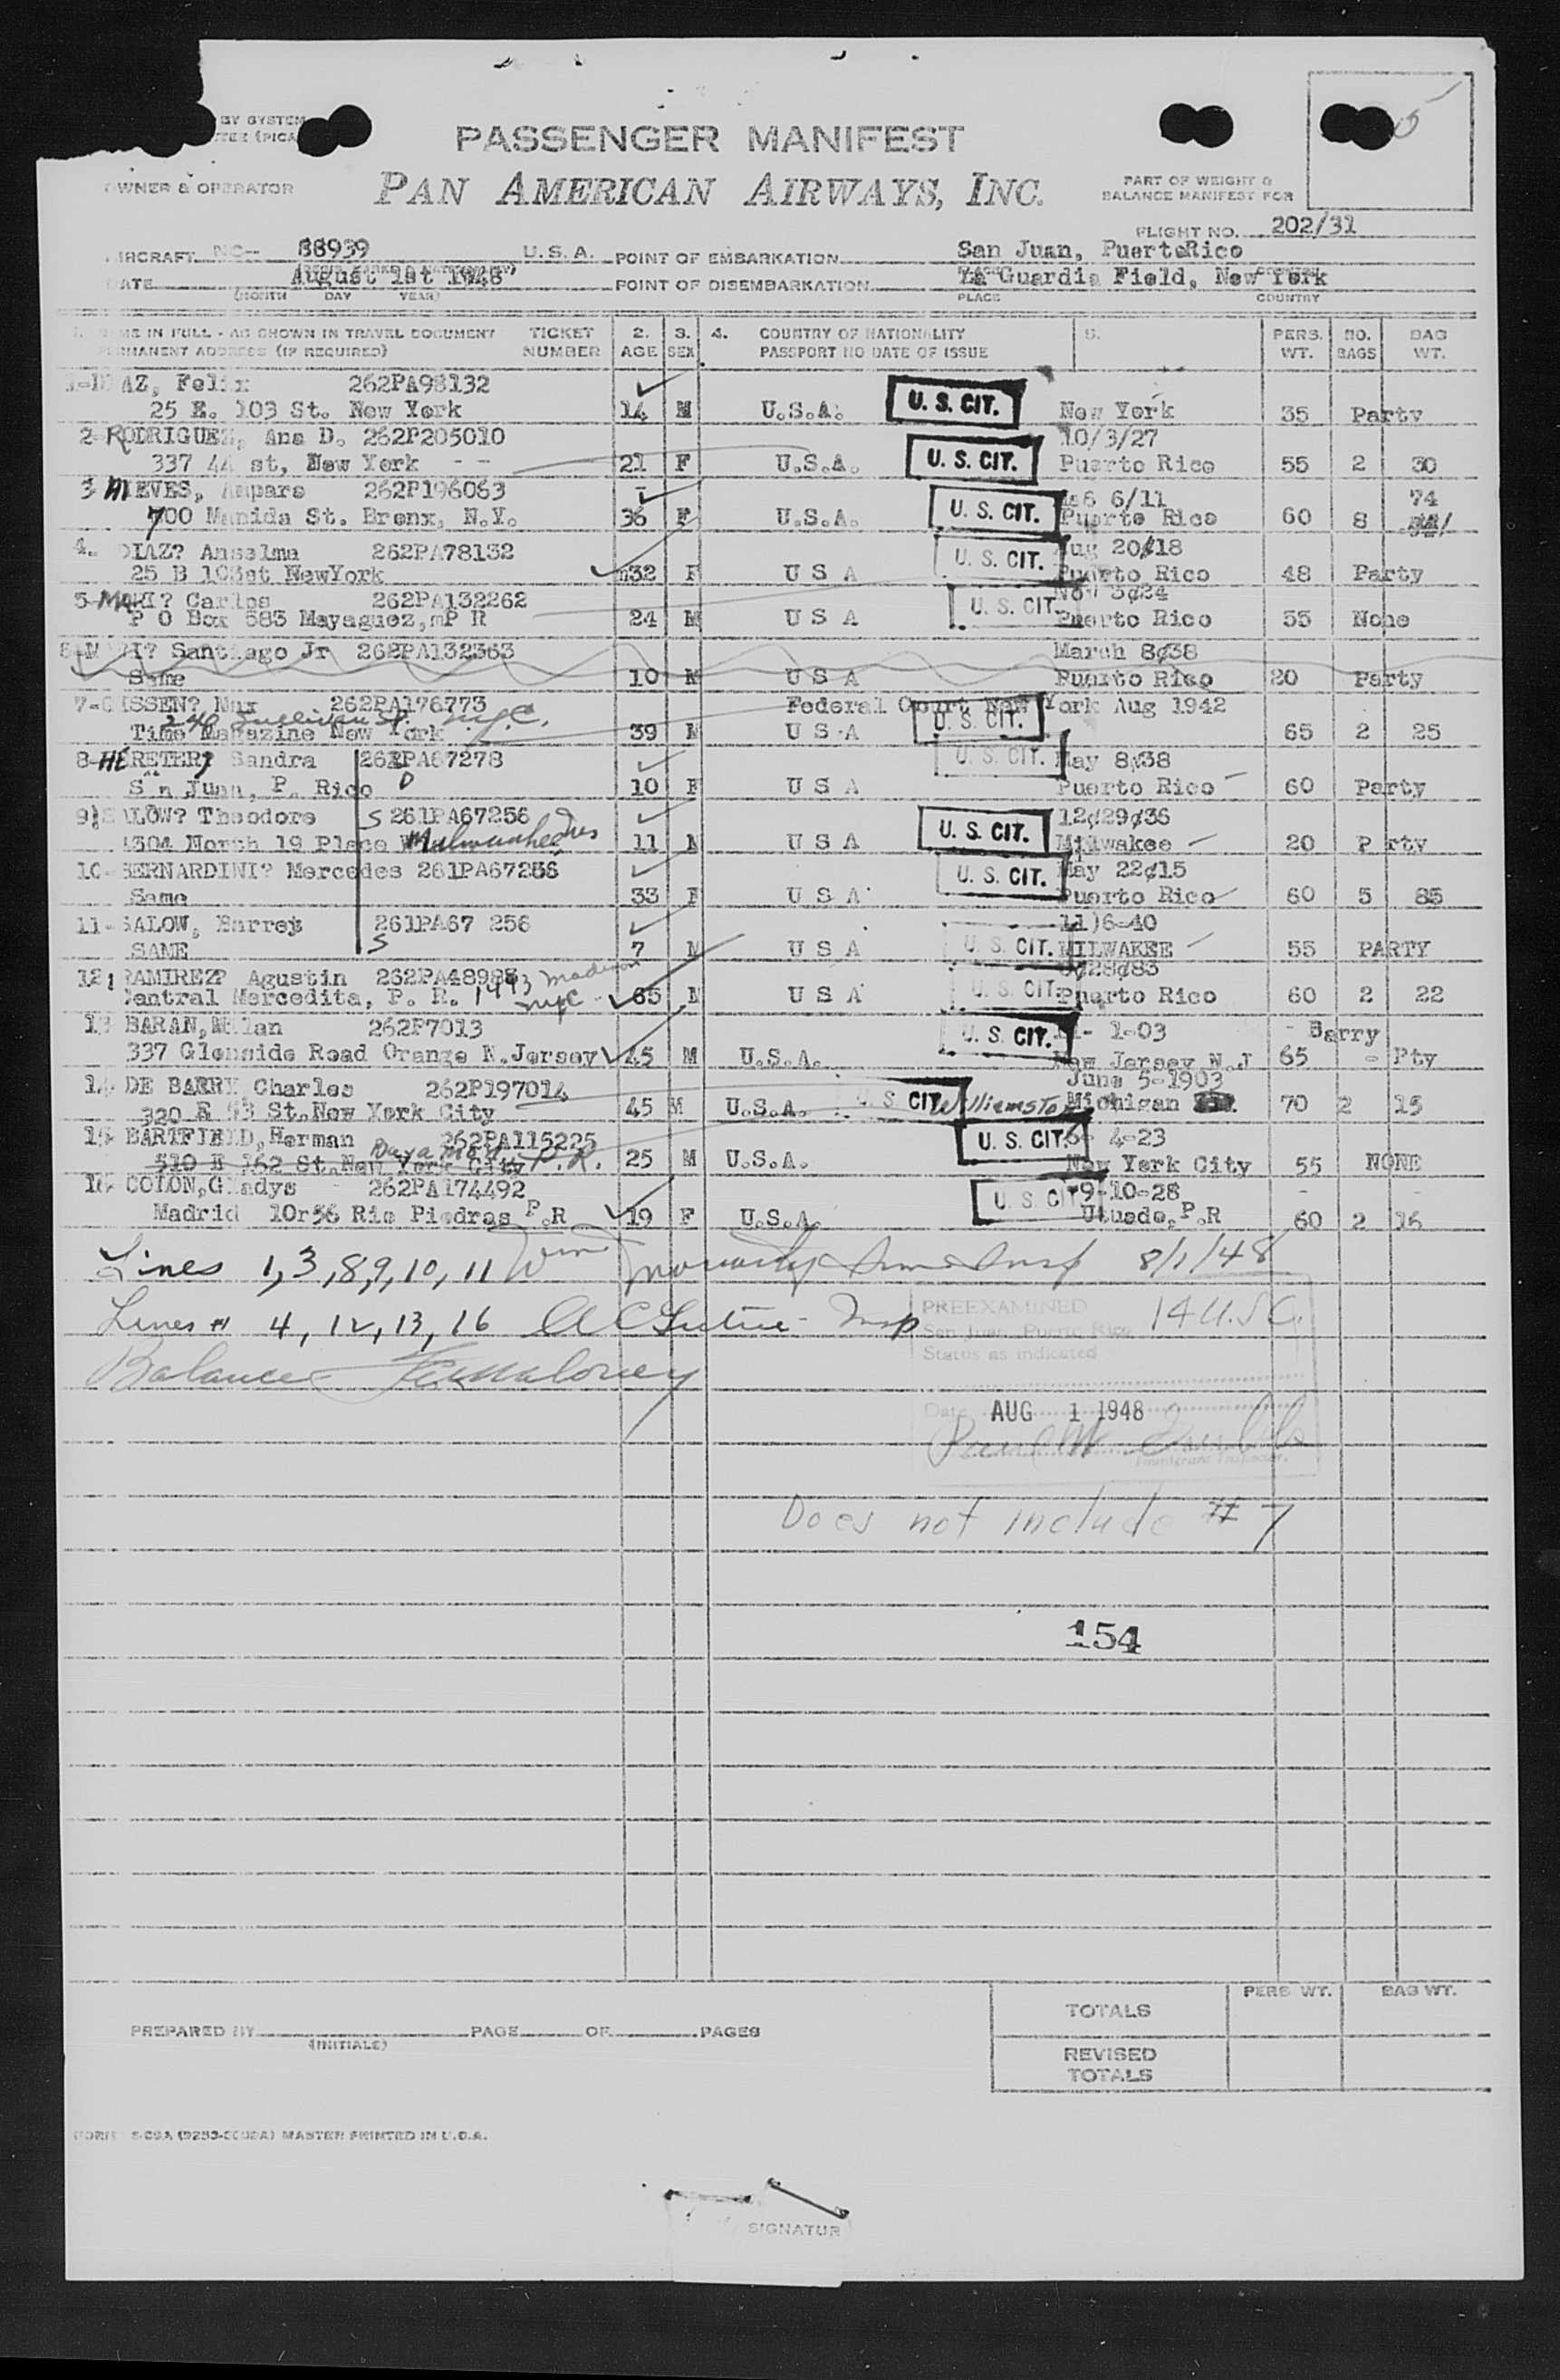 BY SYSTEM
PASSENGER MANIFEST
OWNER & OPERATOR
PAN AMERICAN AIRWAYS, INC.
PART OF WEIGHT &
BALANCE MANIFEST FOR
FLIGHT NO. 202/31
AIRCRAFT NC- 88939 U.S.A. POINT OF EMBARKATION San Juan, PuertoRico
DATE August 1st 1948 POINT OF DISEMBARKATION La Guardia Field, New York
(MONTH DAY YEAR) PLACE COUNTRY
NAME IN FULL - AS SHOWN IN TRAVEL DOCUMENT TICKET 2. 3. 4. COUNTRY OF NATIONALITY 5. PERS. NO. BAG
PERMANENT ADDRESS (IF REQUIRED) NUMBER AGE SEX PASSPORT NO DATE OF ISSUE WT. BAGS WT.
DIAZ, Felix 262PA98132
25 E. 103 St. New York 14 M U.S.A. U. S. CIT. New York 35 Party
2- RODRIGUEZ, Ana D. 262P205010 10/3/27
337 44 st, New York - - 21 F U.S.A. U. S. CIT. Puerto Rico 55 2 30
3 NIEVES, Ampara 262P196063 6/11 74
700 Manida St. Bronx, N.Y. 36 F U.S.A. U. S. CIT. Puerto Rico 60 8
4. DIAZ? Anselma 262PA78132 Aug 20¢18
25 B 103st NewYork 32 F U S A U. S. CIT. Puerto Rico 48 Party
5- MARI? Carlos 262PA132262 Nov 3¢24
P O Box 583 Mayaguez, P R 24 M U S A U. S. CIT. Puerto Rico 55 None
Santiago Jr 262PA132363 March 8¢38
Same 10 M U S A Puerto Rico 20 Party
7- Max 262PA176773 Federal Court New York Aug 1942
240 Sullivan St. NYC.
Time Magazine New York 39 M U S A U. S. CIT. 65 2 25
8- HERETER, Sandra 262PA67278 May 8¢38
San Juan, P. Rico D 10 F U S A U. S. CIT. Puerto Rico 60 Party
9 SALOW? Theodore S 261PA67256 12¢29¢36
4504 North 19 Place Milwaukee 11 M U S A U. S. CIT. Milwakee 20 Party
10- BERNARDINI? Mercedes 261PA67256 May 22¢15
Same 33 F U S A U. S. CIT. Puerto Rico 60 5 85
11- SALOW, Barrey 261PA67 256 11)6-40
SAME S 7 M U S A U. S. CIT. MILWAKEE 55 PARTY
12 RAMIREZ? Agustin 262PA48985 ¢28¢83
Central Mercedita, P. R. 1493 Madison NYC 65 M U S A U. S. CIT. Puerto Rico 60 2 22
13 BARAN, Milan 262P7013 1-03 Barry
337 Glenside Road Orange N.Jersey 45 M U.S.A. U. S. CIT. New Jersey N.J 65 - Pty
14 DE BARRY, Charles 262P197014 June 5-1903
320 E 53 St.New York City 45 M U.S.A. U. S. CIT. Michigan 70 2 15
15 BARTFIELD, Herman 262PA115225 4-23
510 E 162 St.New York City P.R. 25 M U.S.A. U. S. CIT. New York City 55 NONE
16 COLON, Gladys 262PA174492 9-10-28
Madrid 10r56 Rio Piedras P.R 19 F U.S.A. U. S. CIT Utuado, P.R 60 2 16
Lines 1,3,8,9,10,11 Wm Moriarty Imm Insp 8/1/48
Lines # 4, 12, 13, 16 Insp
PREEXAMINED 14 U.S.C.
San Juan, Puerto Rico
Status as indicated
Balance
Date AUG 1 1948
Immigrant Inspector.
Does not include # 7
154
TOTALS PERS WT. BAG WT.
PREPARED BY PAGE OF PAGES
(INITIALS)
REVISED
TOTALS
MASTER PRINTED IN U.S.A.
SIGNATUR